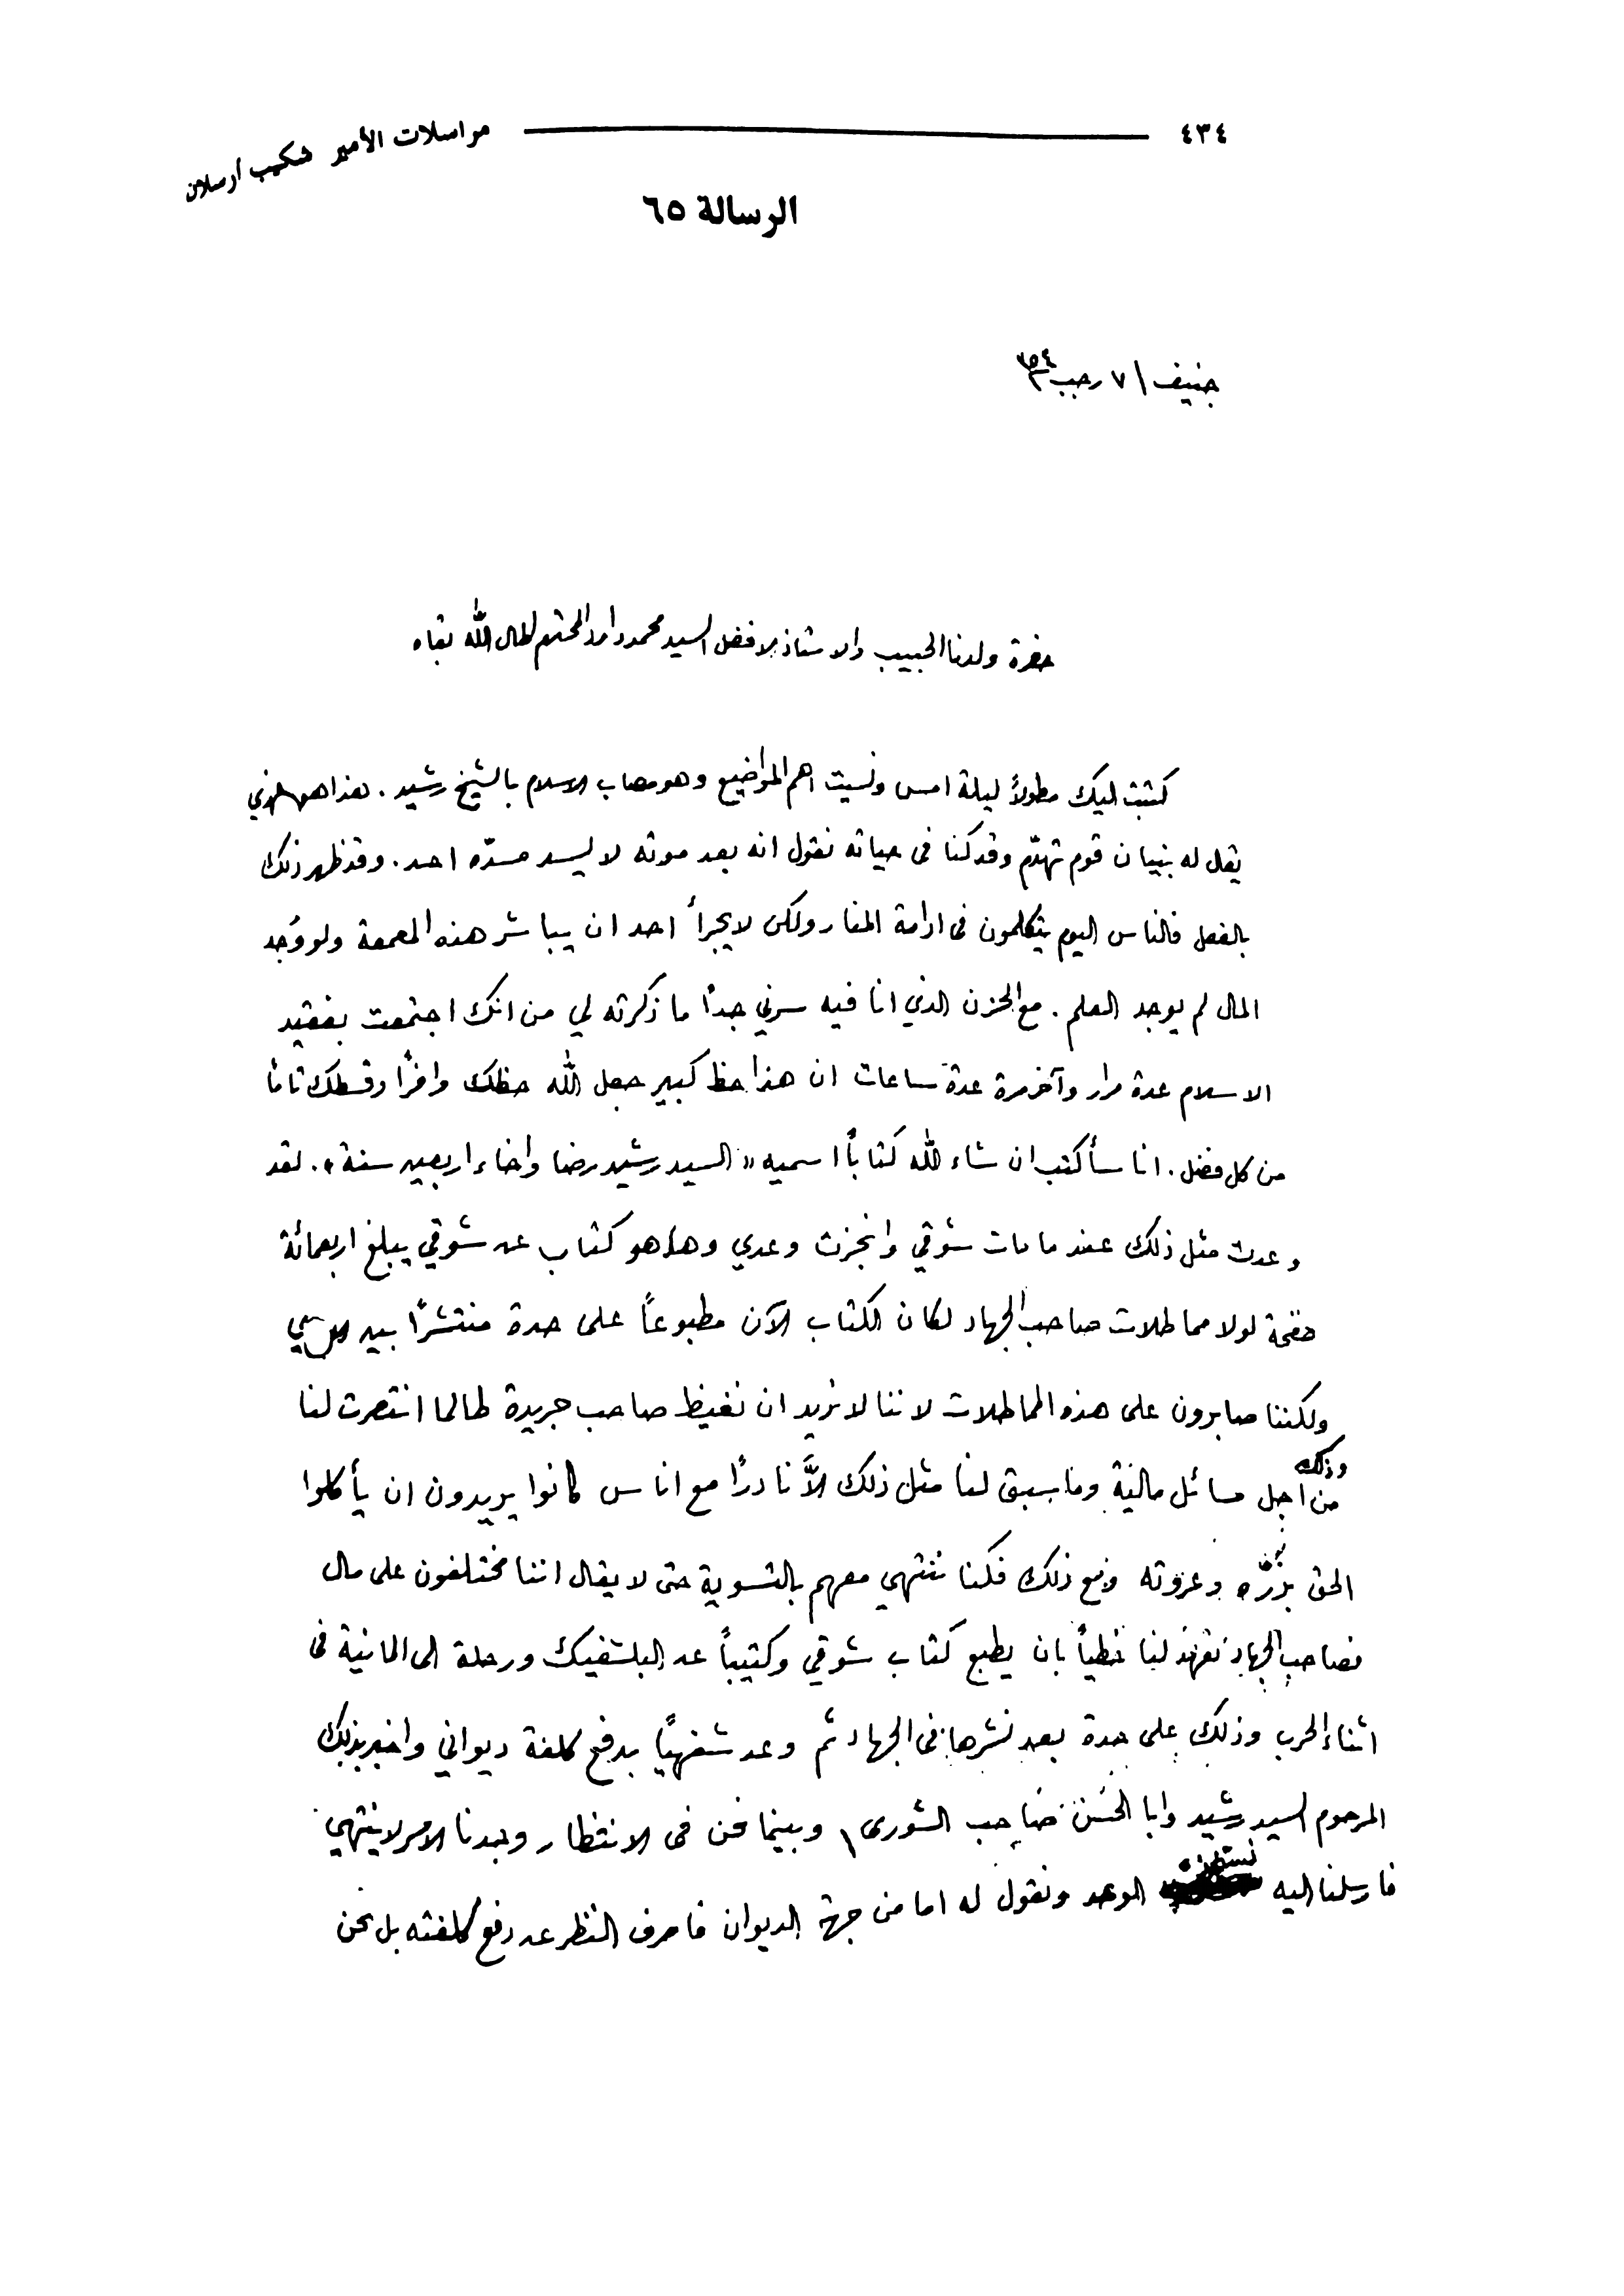 ٤٣٤ مراسلات الأمير شكيب أرسلان
الرسالة ٦٥
جنيف / ٧ رجب ٣٥٤
حضرة ولدنا الحبيب والاستاذ الافضل السيد محمد داود المحترم اطال الله بقاه
كتبت اليك مطولاً ليلة امس ونسيت اهم المواضيع وهو مصاب الاسلام بالشيخ رشيد . هذا هو الذي
يقال له بنيان قوم تهدّم وقد كنا فى حياته نقول انه بعد موته لا يسد مسدّه احد . وقد ظهر ذلك
بالفعل فالناس اليوم يتكلمون فى ادامة المنار ولكن لا يجرأ احد ان يباشر هذه المعمعة ولو وُجد
المال لم يوجد العلم . مع الحزن الذي انا فيه سرني جداً ما ذكرته لي من انك اجتمعت بفقيد
الاسلام عدة مرار وآخر مرة عدة ساعات ان هذا حظ كبير جعل الله حظك وافراً وقسطك تاماً
من كل فضل . انا سأكتب ان شاء الله كتاباً اسميه « السيد رشيد رضا واخاء اربعين سنة » . لقد
وعدت مثل ذلك عندما مات شوقي وانجزت وعدي وها هو كتاب عن شوقي يبلغ اربعمائة
صفحة لولا مماطلات صاحب الجهاد لكان الكتاب الآن مطبوعاً على حدة منتشراً بين
ولكننا صابرون على هذه المماطلات لاننا لا نريد ان نغيظ صاحب جريدة طالما انتصرت لنا
وذلك
من اجل مسائل مالية وما سبق لنا مثل ذلك الاَّ نادراً مع اناس كانوا يريدون ان يأكلوا
الحق وعروته ومع ذلك فكنا ننتهي معهم بالتسوية حتى لا يقال اننا مختلفون على مال
فصاحب الجهاد تعهد لنا خطياً بان يطبع كتاب شوقي وكتيباً عن البلشفيك ورحلة الى المانية فى
اثناء الحرب وذلك على حدة بعد نشرها فى الجهاد ثم وعد شفهيًا بدفع كلفة ديواني واخبر بذلك
المرحوم السيد رشيد وابا الحسن صاحب الشورى \ وبينما نحن فى الانتظار وجدنا الامر لا ينتهي
فارسلنا اليه نستنجزه الوعد ونقول له اما من جهة الديوان فاصرف النظر عن دفع كلفته بل نحن